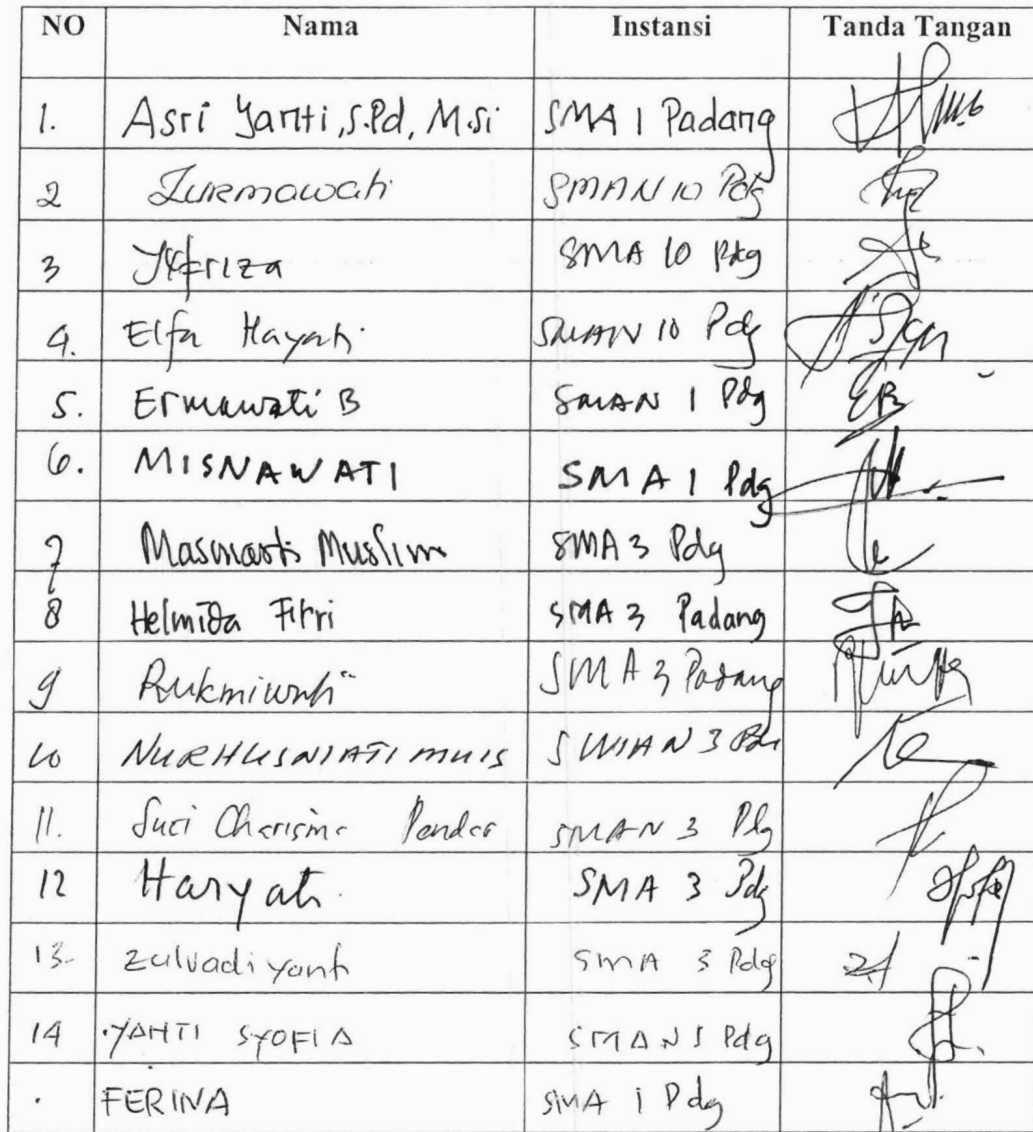 NO Nama Instansi Tanda Tangan
1. Asri Yanti, S.Pd, M.Si SMA 1 Padang
2 Zurmawati SMAN 10 Pdg
3 SMA 10 Pdg
4. Elfa Hayati SMAN 10 Pdg
5. Ermawati B SMAN 1 Pdg
6. MISNAWATI SMA 1 Pdg
7 Muslim SMA 3 Pdg
8 Helmida Fitri SMA 3 Padang
9 Rukmiwati SMA 3 Padang
10 NURHUSNIATI MUIS SMAN 3
11. Suci Charisma SMAN 3 Pdg
12 Haryati SMA 3 Pdg
13. Zulvadiyanti SMA 3 Pdg
14 YANTI SYOFIA SMAN Pdg
. FERINA SMA 1 Pdg